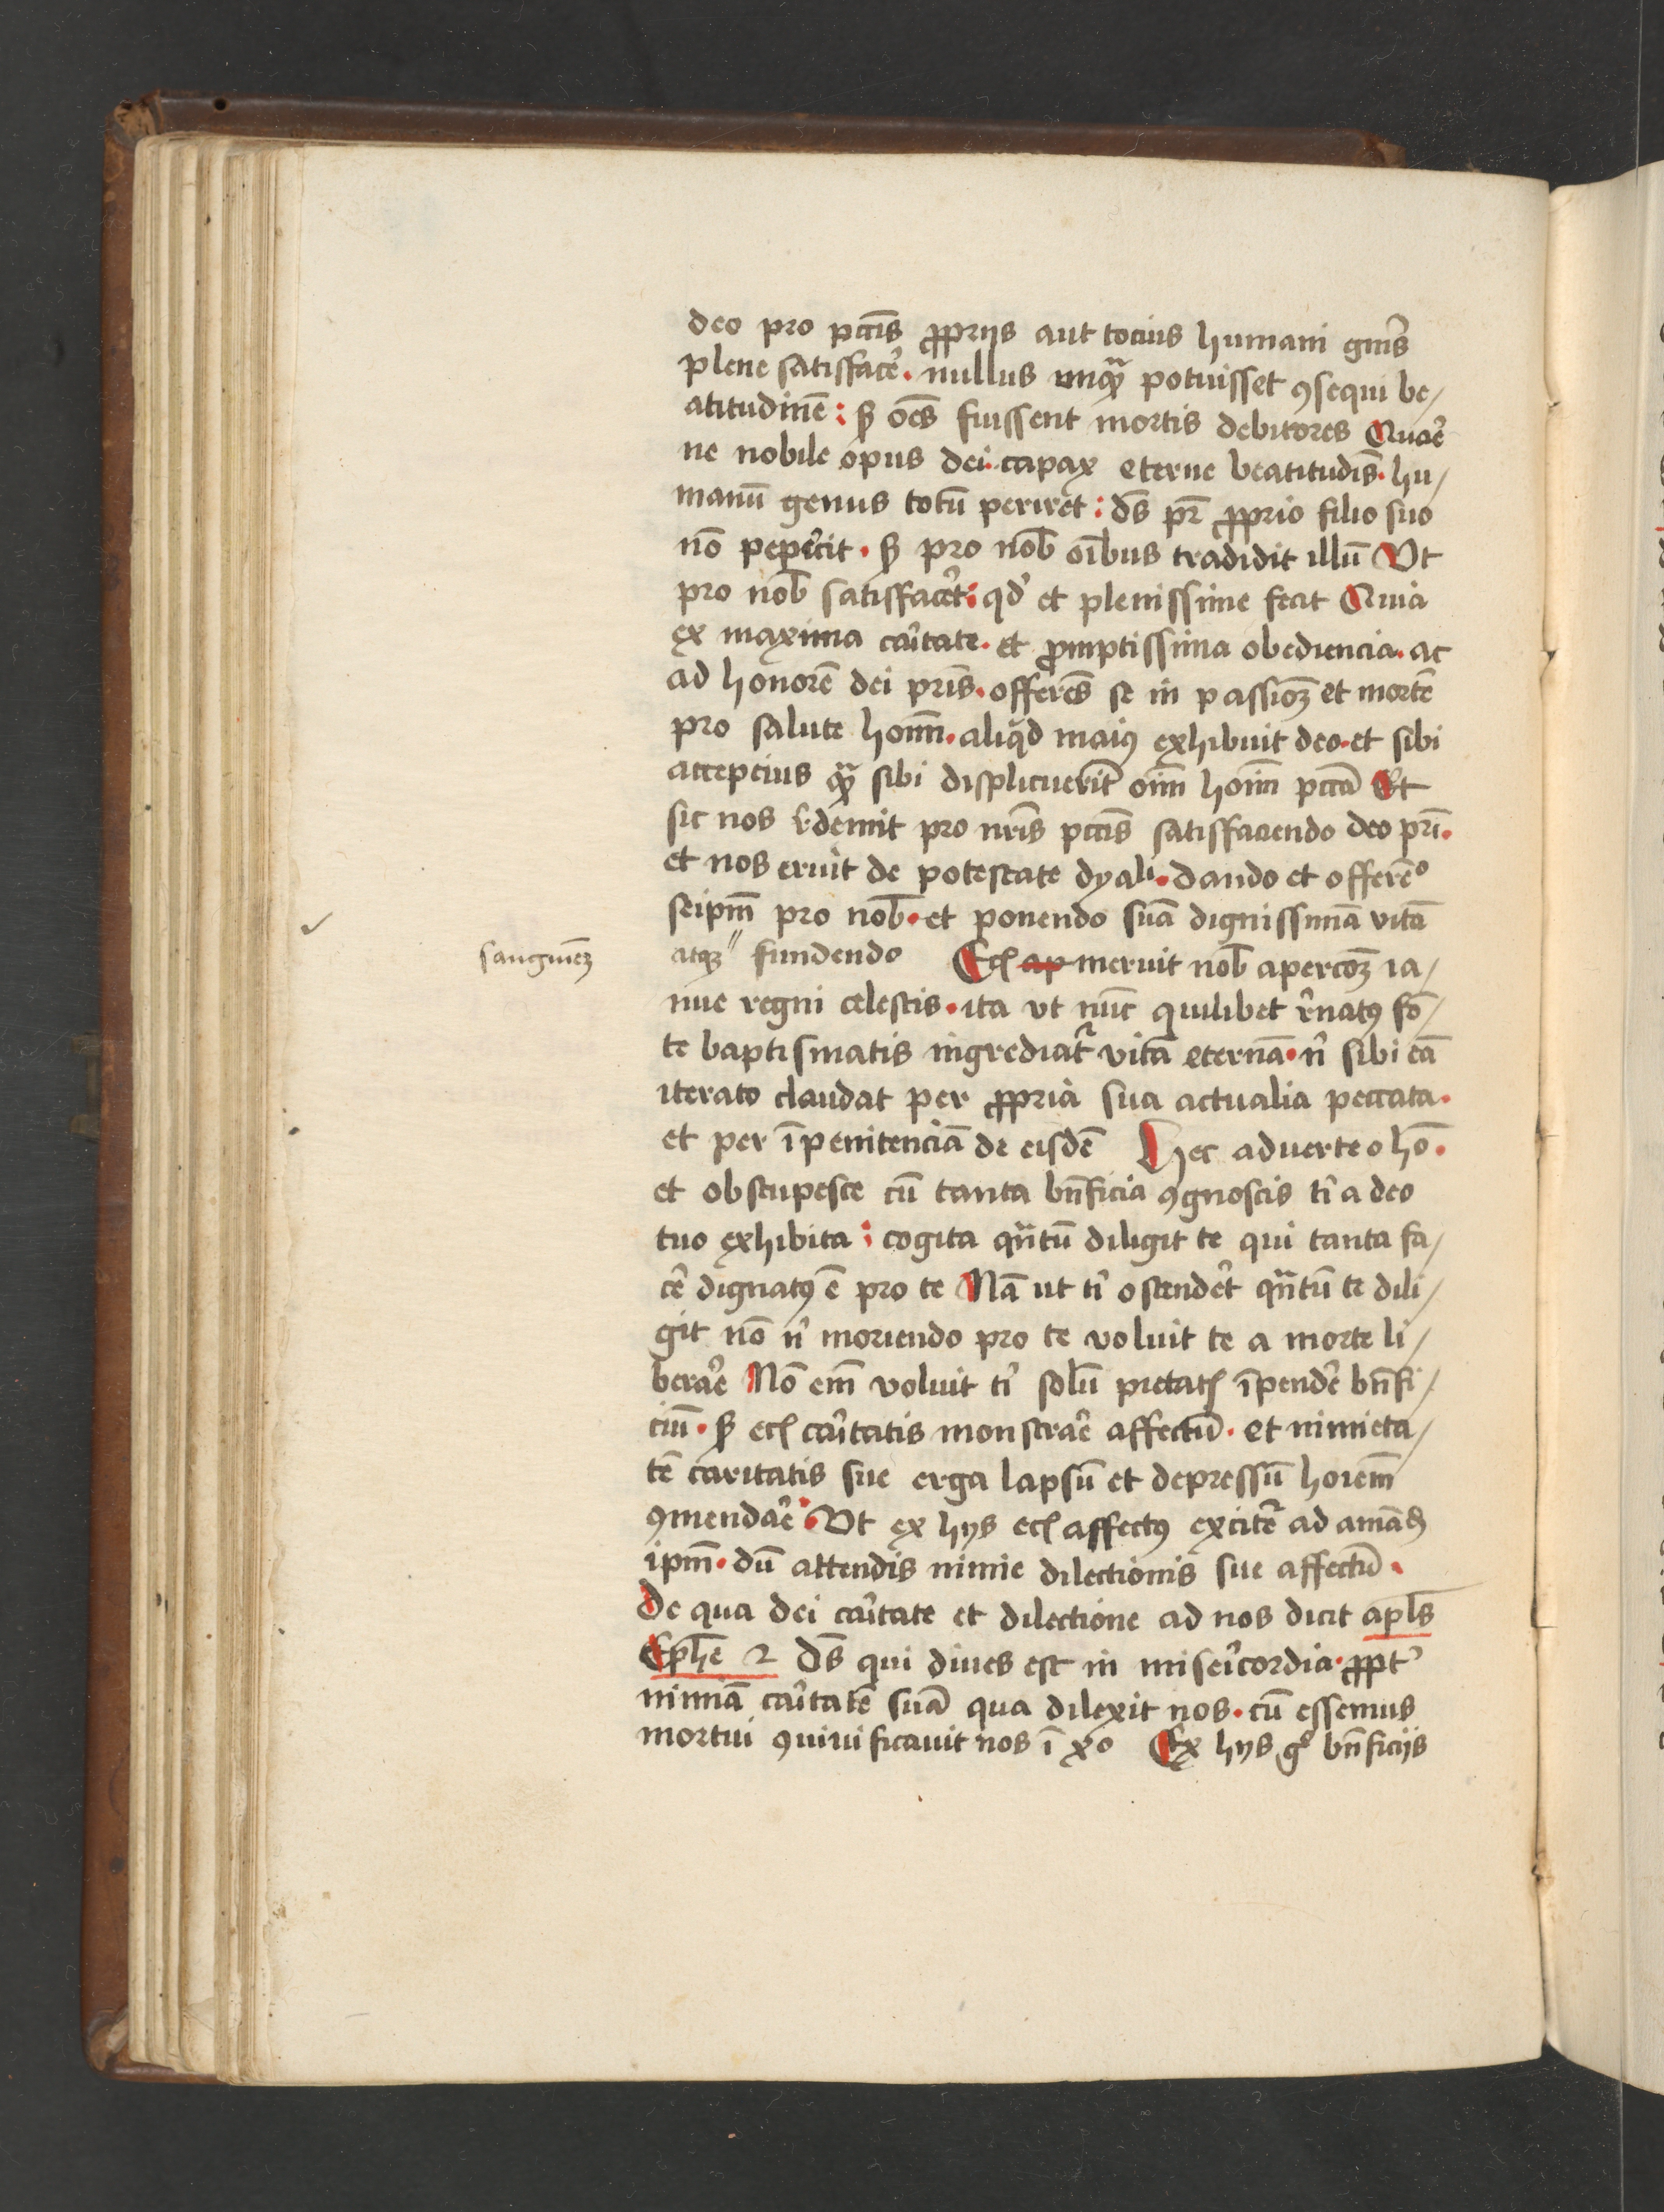 deo pro pctīs ꝓprijs aut tocius humani gn̄is
plene satisfacē̉. nullus unqꝫ potuisset ꝯsequi be/
atitudinē : sꝫ oēs fuissent mortis debitores Quaē̉
ne nobile opus dei. capax eterne beatitudīs. hu/
manū genus totū periret : ds̄ pr̄ ꝓprio filio suo
nō pepercit. sꝫ pro nob̄ oībus tradidit illū Vt
pro nob̄ satisfacēt : qd̓ et plenissime fecit Quia
ex maxima cāitate. et ꝓmptissima obediencia. ac
ad honorē dei pr̄is. offerēs se in passioꝫ et mortē
pro salute hom̄. aliqd maiꝰ exhibuit deo. et sibi
accepcius qꝫ sibi displicuerīt oīm hoīm pctā Et
sic nos r̓demit pro nr̄is pctīs satisfaciendo deo pr̄i.
et nos eruit de potestate dyali. dando et offerē̊
seipm̄ pro nob̄. et ponendo suā dignissimā vitā
sanguinēꝫ atqꝫ" fundendo Ecꝭ ap meruit nob̄ apercoꝫ ia/
nue regni celestis. ita vt nūc quilibet r̓natꝰ fō/
te baptismatis ingrediat̉ vitā eternā. n̄ sibi eā
iterato claudat per ꝓpria sua actualia peccata.
et per īpenitenciā de eisdē Hec aduerte o hō.
et obstupesce cū tanta bn̄ficia ꝯgnoscis tī a deo
tuo exhibita : cogita qn̄tū diligit te qui tanta fa/
cē̉ dignatꝰ ē pro te Nā ut tī ostendēt qn̄tū te dili/
git nō n̄ moriendo pro te voluit te a morte li/
beraē̉ Nō em̄ voluit tī solū pietatꝭ īpendē̉ bn̄fi/
ciū. sꝫ ecꝭ cāitatis monstraē̉ affectū. et nimieta/
tē caritatis sue erga lapsū et depressū hoīem̄
ꝯmendaē̉. Vt ex hys ecꝭ affectꝰ excitē̉ ad amādꝫ
ipm̄. dū attendis nimie dilectionis sue affectū.
De qua dei cāitate et dilectione ad nos dicit apls̄
Ephē 2 Ds̄ qui diues est in misericordia. ꝓpt̉
nimiā cāitatē suā qua dilexit nos. cū essemus
mortui ꝯuiuificauit nos ī xō Ex hys gͦ bn̄ficijs